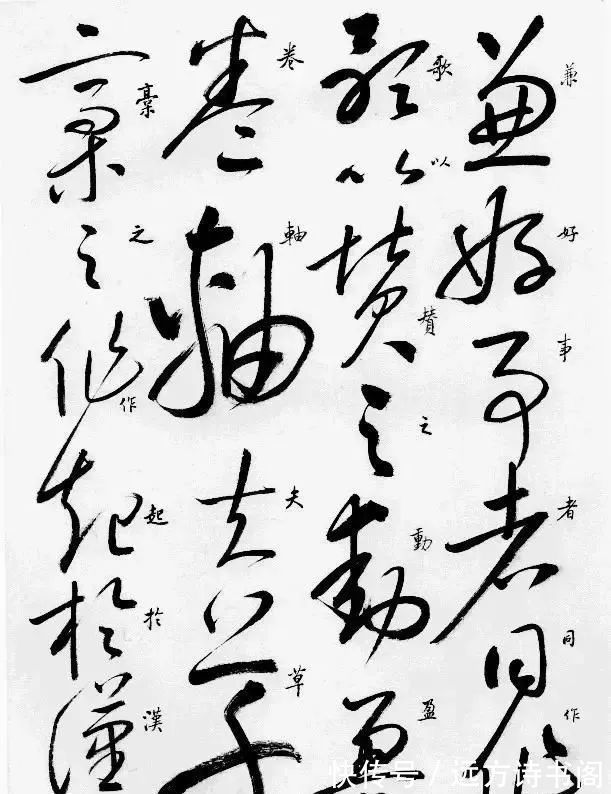 兼好事者同作
歌以賛之動盈
卷軸夫草
稾之作起於漢
快传号 / 远方诗书阁